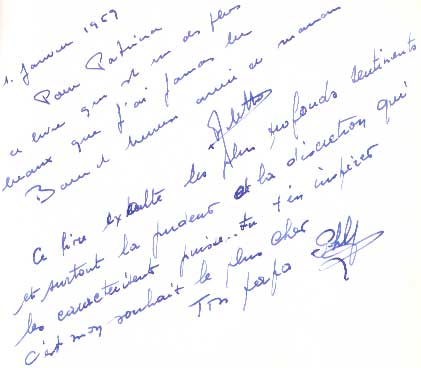 1. Janvier 1959
Pour Patricia
ce livre qui est un des plus
beaux que j'ai jamais lu
Bonne et heureuse année de maman
Arletto
Ce livre exalte les plus profonds sentiments
et surtout la pudeur et la discretion qui
les caractérisent puisse.. tu t'en inspirer
c'est mon souhait le plus cher
Ton papa